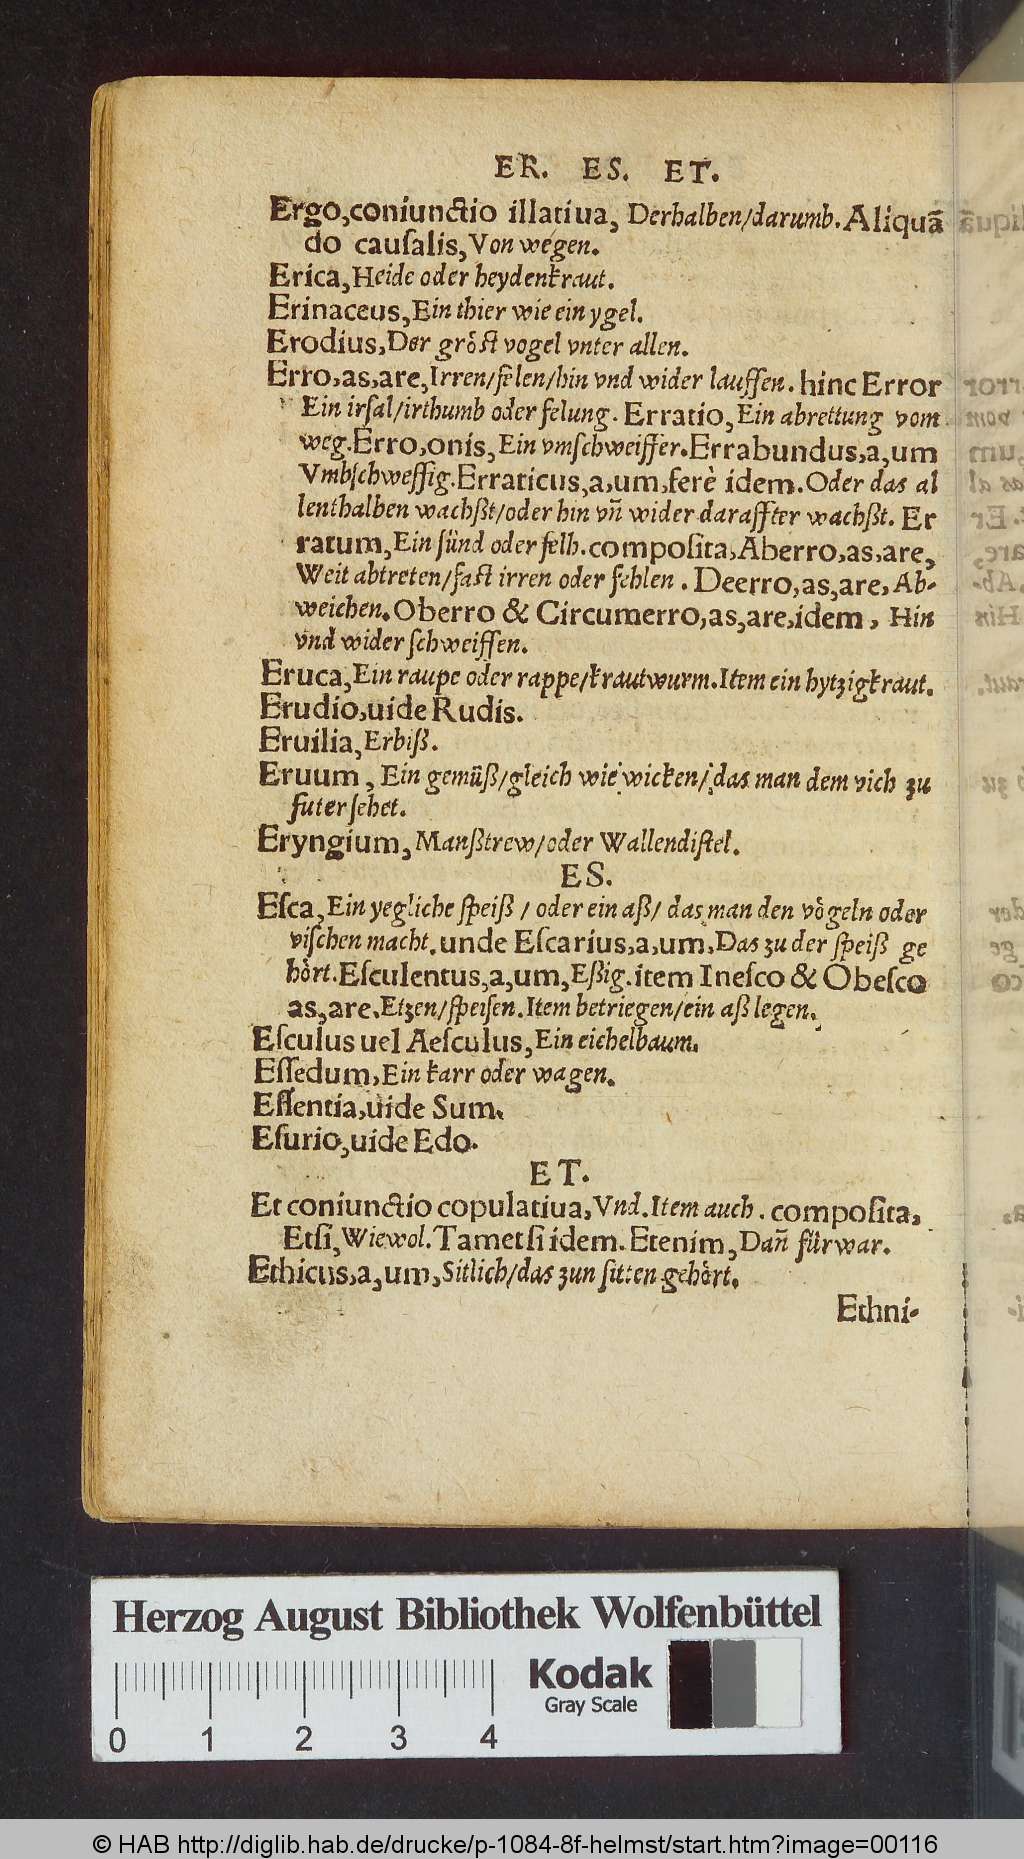 ER. ES. ET.
Ergo, coniunctio illatiua, Derhalben/darumb. Aliquã
do causalis, Von wegen.
Erica, Heide oder heydenkraut.
Erinaceus, Ein thier wie ein ygel.
Erodius, Der gröſt vogel vnter allen.
Erro, as, are, Irren/felen/hin vnd wider lauffen. hinc Error
Ein irſal/irthumb oder felung. Erratio, Ein abrettung vom
weg. Erro, onis, Ein vmſchweiffer. Errabundus, a, um
Vmbſchweffig. Erraticus, a, um, ferè idem. Oder das al
lenthalben wachßt/oder hin vñ wider daraffter wachßt. Er
ratum, Ein ſünd oder felh. compoſita, Aberro, as, are,
Weit abtreten/faſt irren oder fehlen. Deerro, as, are, Ab-
weichen. Oberro & Circumerro, as, are, idem, Hin
vnd wider ſchweiffen.
Eruca, Ein raupe oder rappe/krautwurm. Item ein hytzigkraut.
Erudio, uide Rudis.
Eruilia, Erbiß.
Eruum, Ein gemüß/gleich wie wicken/das man dem vich zu
futer ſehet.
Eryngium, Manßtrew/oder Wallendiſtel.
ES.
Eſca, Ein yegliche ſpeiß/oder ein aß/das man den vögeln oder
viſchen macht. unde Eſcarius, a, um, Das zu der ſpeiß ge
hört. Eſculentus, a, um, Eßig. item Ineſco & Obeſco
as, are. Etzen/ſpeiſen. Item betriegen/ein aß legen.
Eſculus uel Aeſculus, Ein eichelbaum.
Eſſedum, Ein karr oder wagen.
Eſſentia, uide Sum.
Eſurio, uide Edo.
ET.
Et coniunctio copulatiua, Vnd. Item auch. compoſita,
Etſi, Wiewol. Tametſi idem. Etenim, Dañ fürwar.
Ethicus, a, um, Sitlich/das zun ſitten gehört.
Ethni-
Herzog August Bibliothek Wolfenbüttel
Kodak
Gray Scale
0 1 2 3 4
© HAB http://diglib.hab.de/drucke/p-1084-8f-helmst/start.htm?image=00116